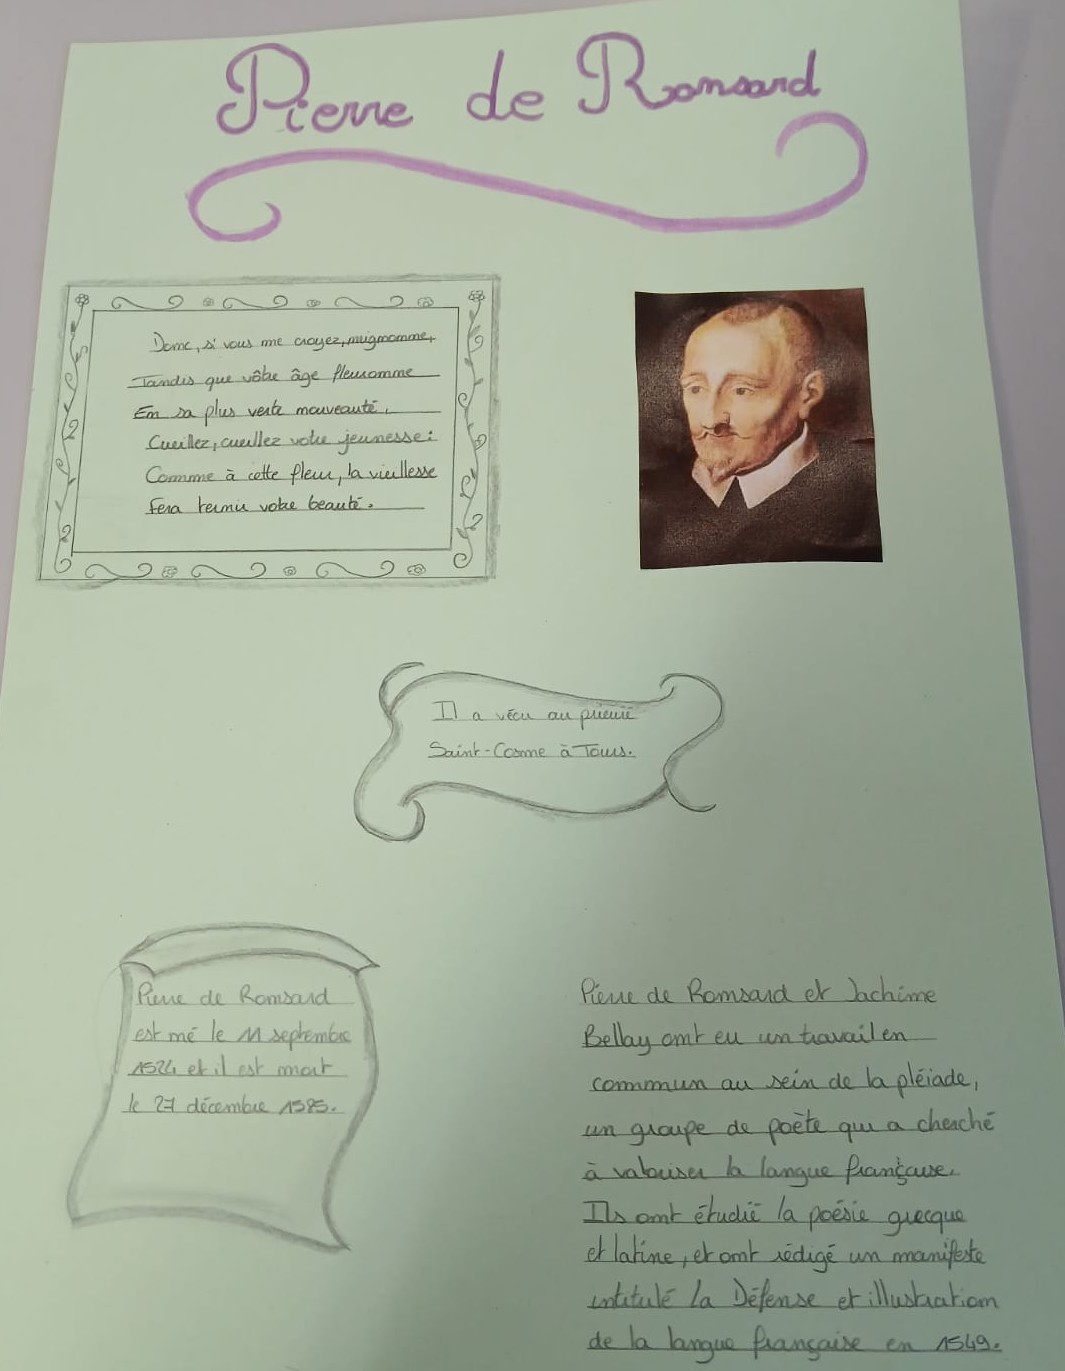 Pierre de Ronsard
Donc, si vous me croyez, mignonne,
Tandis que vôtre âge fleuronne
En sa plus verte nouveauté,
Cueillez, cueillez votre jeunesse :
Comme à cette fleur, la vieillesse
Fera ternir votre beauté.
Il a vécu au prieuré
Saint-Cosme à Tours.
Pierre de Ronsard
est né le 11 septembre
1524 et il est mort
le 27 décembre 1585.
Pierre de Ronsard et Jachime
Bellay ont eu un travail en
commun au sein de la pléiade,
un groupe de poète qui a cherché
à valoriser la langue française.
Ils ont étudié la poésie grecque
et latine, et ont rédigé un manifeste
intitulé la Défense et illustration
de la langue française en 1549.